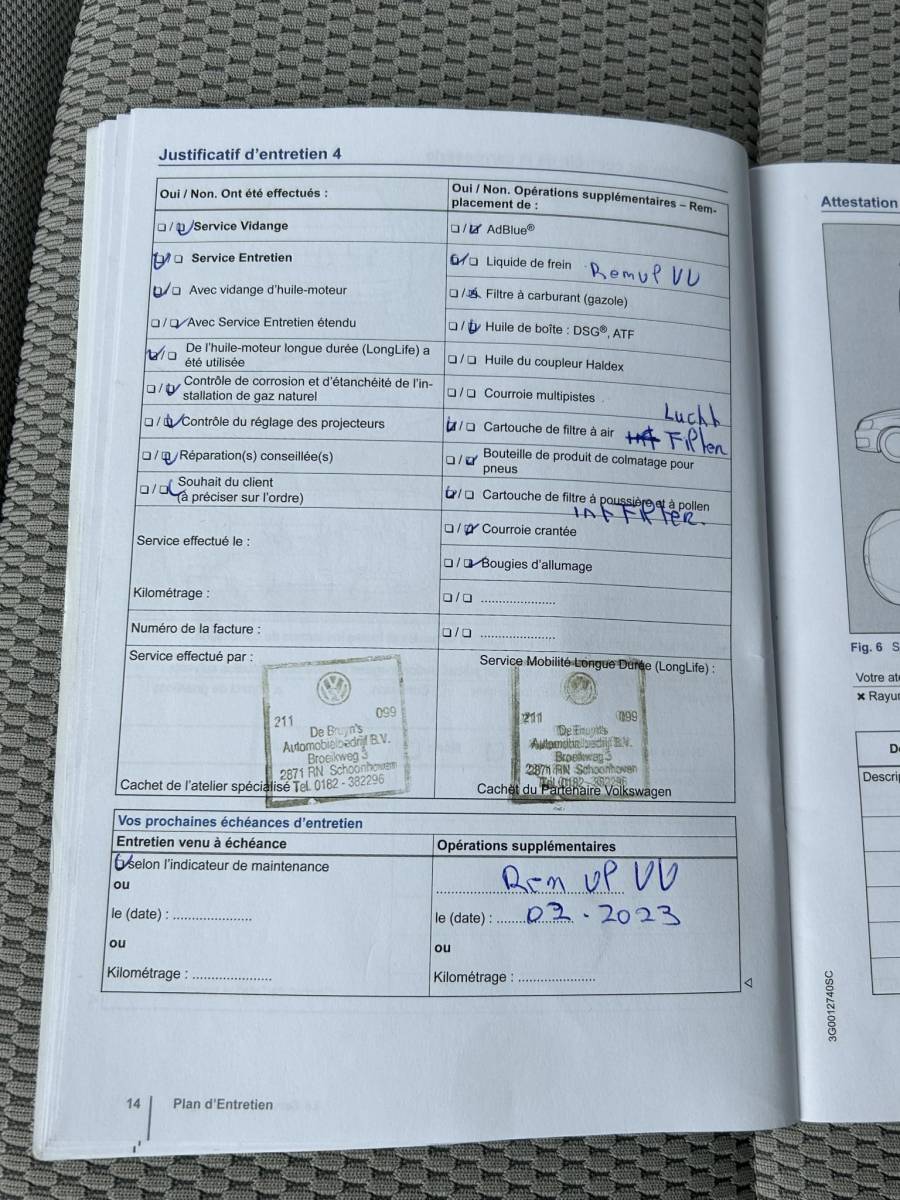 Justificatif d'entretien 4
Oui / Non. Ont été effectués :
Service Vidange
Service Entretien
Avec vidange d'huile-moteur
Avec Service Entretien étendu
De l'huile-moteur longue durée (LongLife) a
été utilisée
Contrôle de corrosion et d'étanchéité de l'in-
stallation de gaz naturel
Contrôle du réglage des projecteurs
Réparation(s) conseillée(s)
Souhait du client
(à préciser sur l'ordre)
Service effectué le :
Kilométrage :
Numéro de la facture :
Service effectué par :
211 099
De Bruyn's
Automobielbedrijf B.V.
Broeikweg 3
2871 RN Schoonhoven
Tel. 0182 - 382296
Cachet de l'atelier spécialisé
Oui / Non. Opérations supplémentaires – Rem-
placement de :
AdBlue®
Liquide de frein
Filtre à carburant (gazole)
Huile de boîte : DSG®, ATF
Huile du coupleur Haldex
Courroie multipistes
Lucht
Cartouche de filtre à air
Filter
Bouteille de produit de colmatage pour
pneus
Cartouche de filtre à poussière et à pollen
Int Filter.
Courroie crantée
Bougies d'allumage
.....................
.....................
Service Mobilité Longue Durée (LongLife) :
211 099
De Bruyn's
Automobielbedrijf B.V.
Broeikweg 3
2871 RN Schoonhoven
Tel. 0182 - 382296
Cachet du Partenaire Volkswagen
Vos prochaines échéances d'entretien
Entretien venu à échéance
selon l'indicateur de maintenance
ou
le (date) : ......................
ou
Kilométrage : ......................
Opérations supplémentaires
Rem
le (date) : 07 . 2023
ou
Kilométrage : ......................
14 Plan d'Entretien
Attestation
Fig. 6 S
Votre
Rayu
3G0012740SC